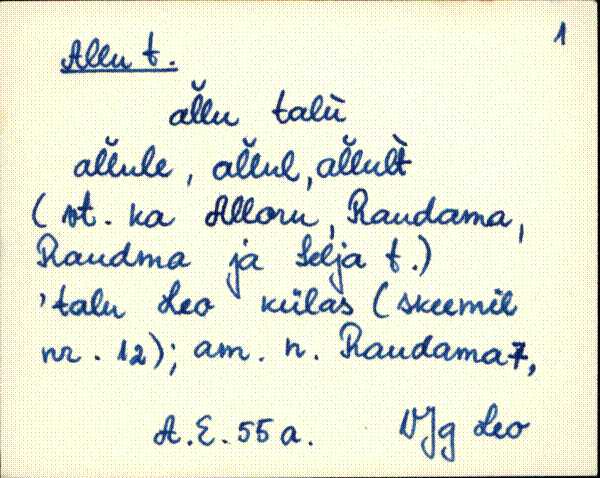 1
Allu t.
al̆lu talù
al̆lule, al̆lul, al̆lult̀
(vt. ka Alloru, Raudama,
Raudma ja Selja t.)
'talu Leo külas (skeemil
nr. 12); am. n. Raudama 7,
A.E. 55 a. VJg Leo